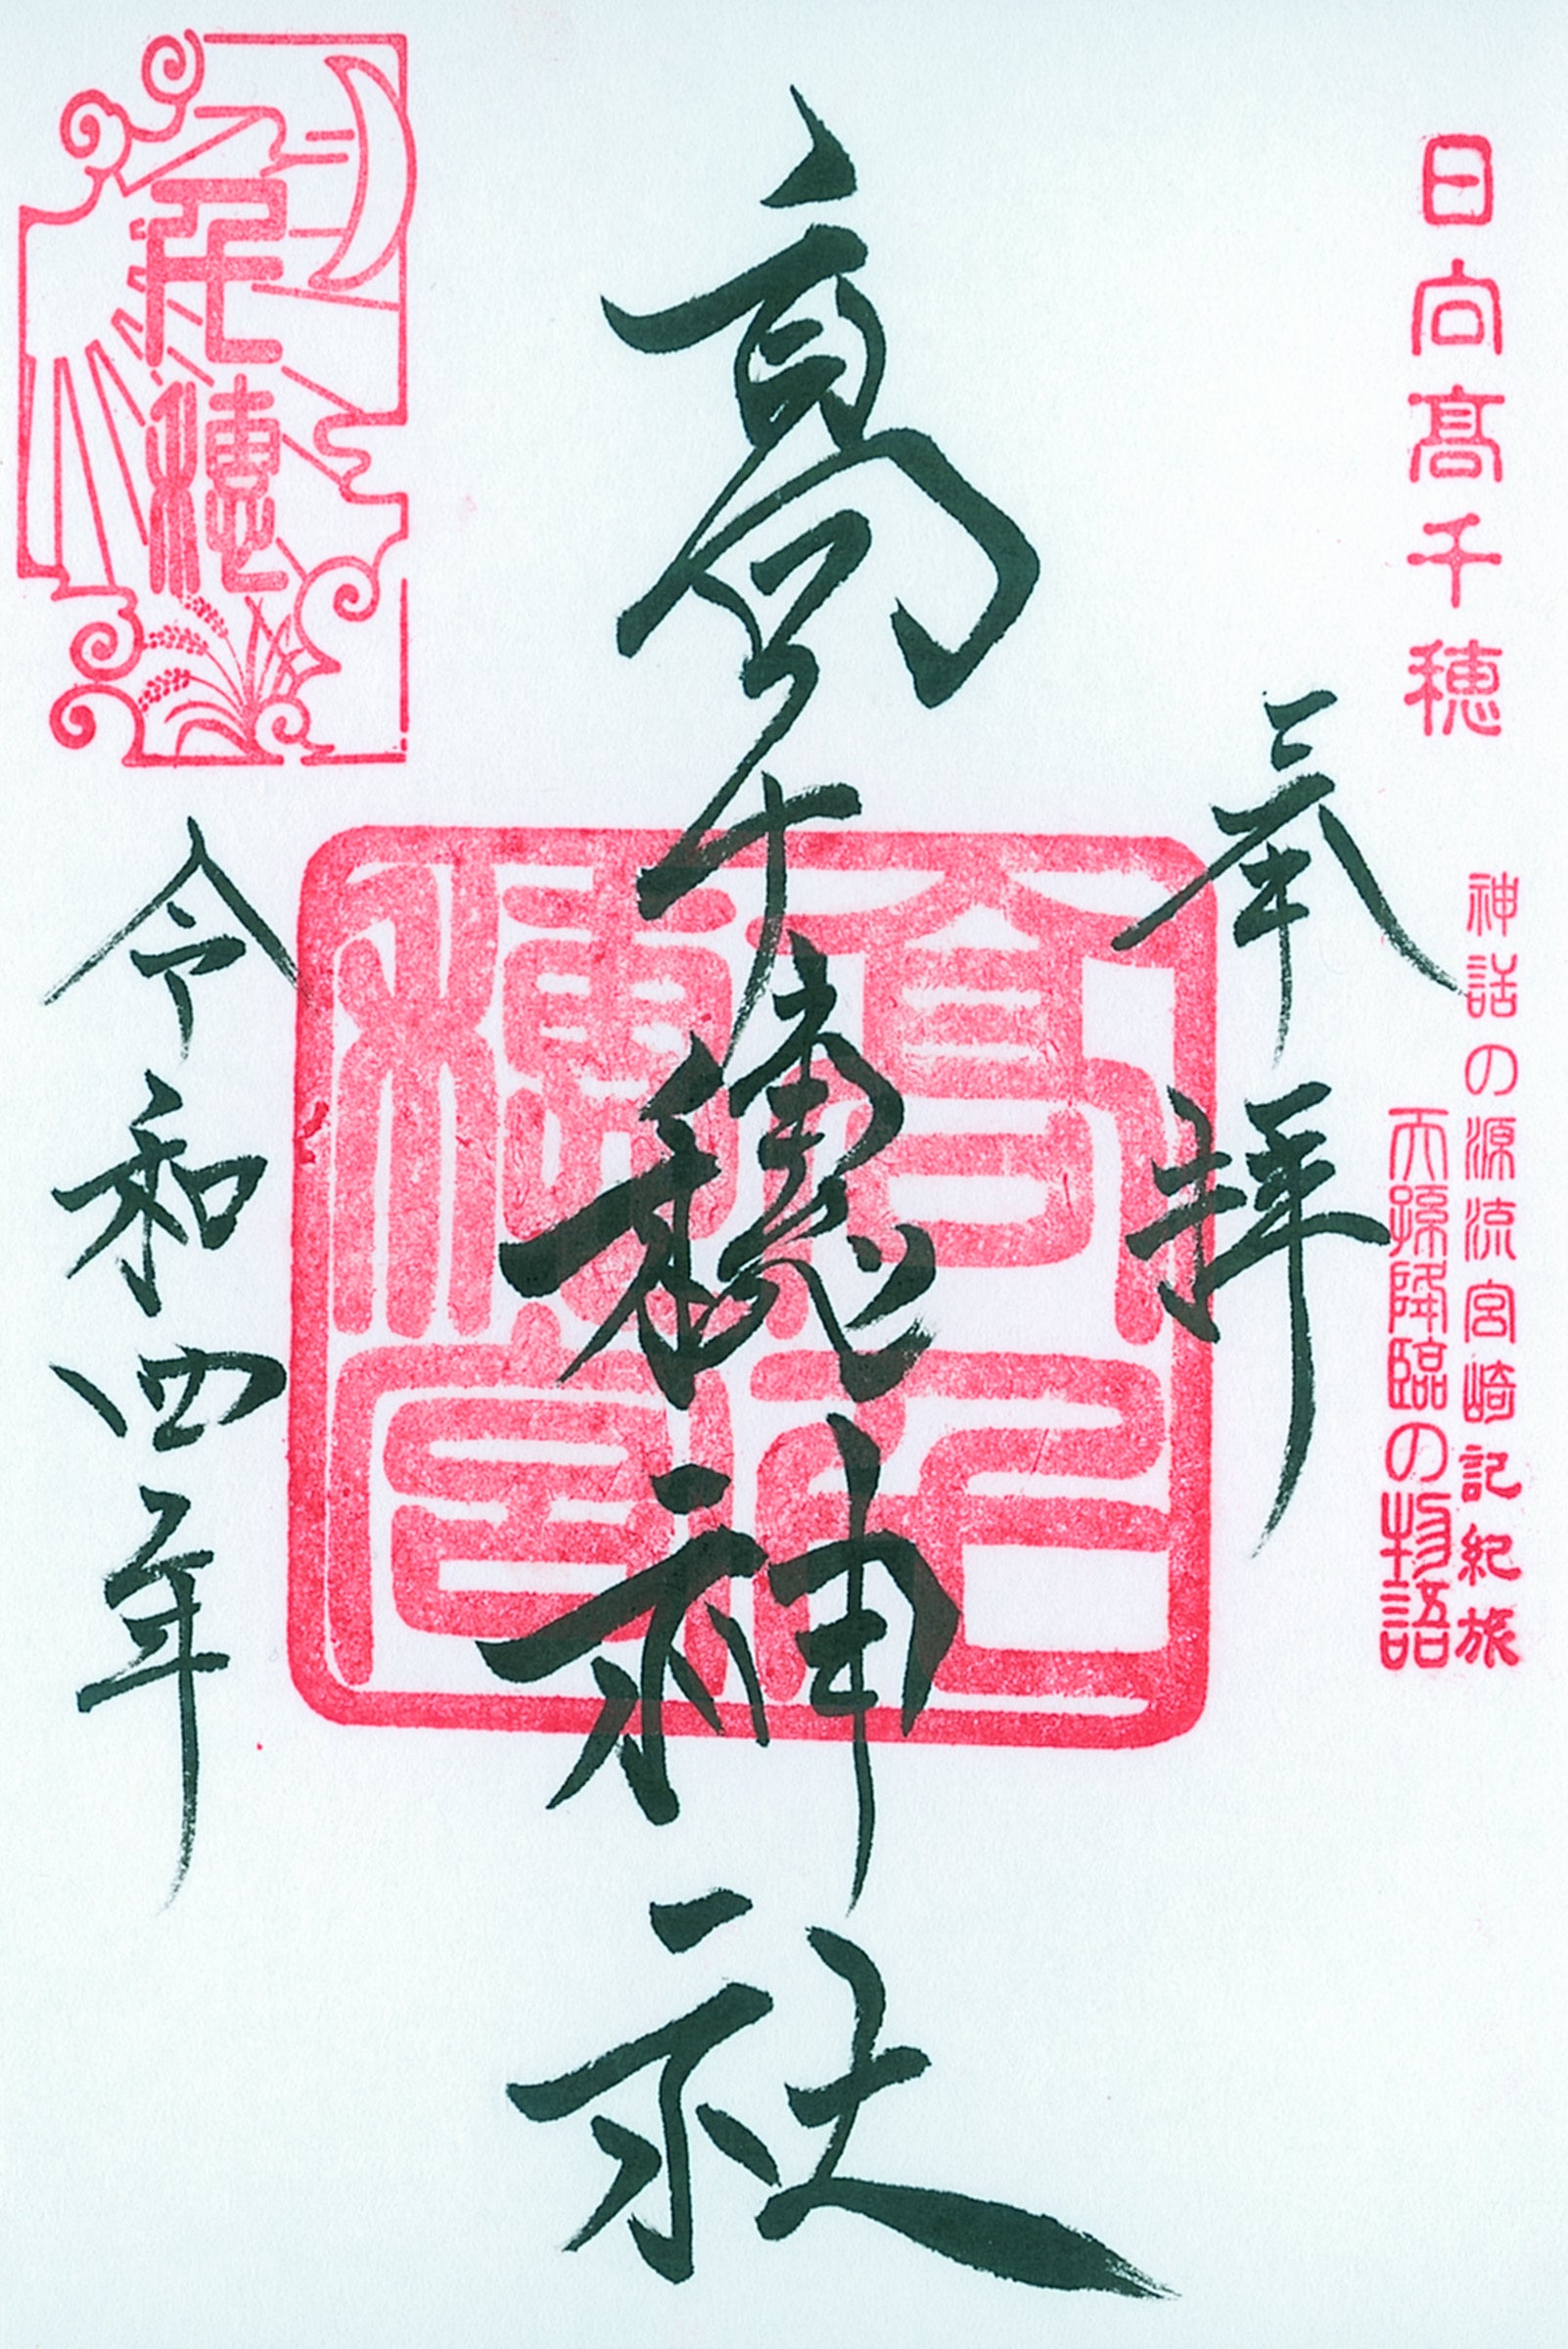 日向髙千穂
神話の源流宮崎記紀旅
天孫降臨の物語
奉拝
高千穂神社
令和四年